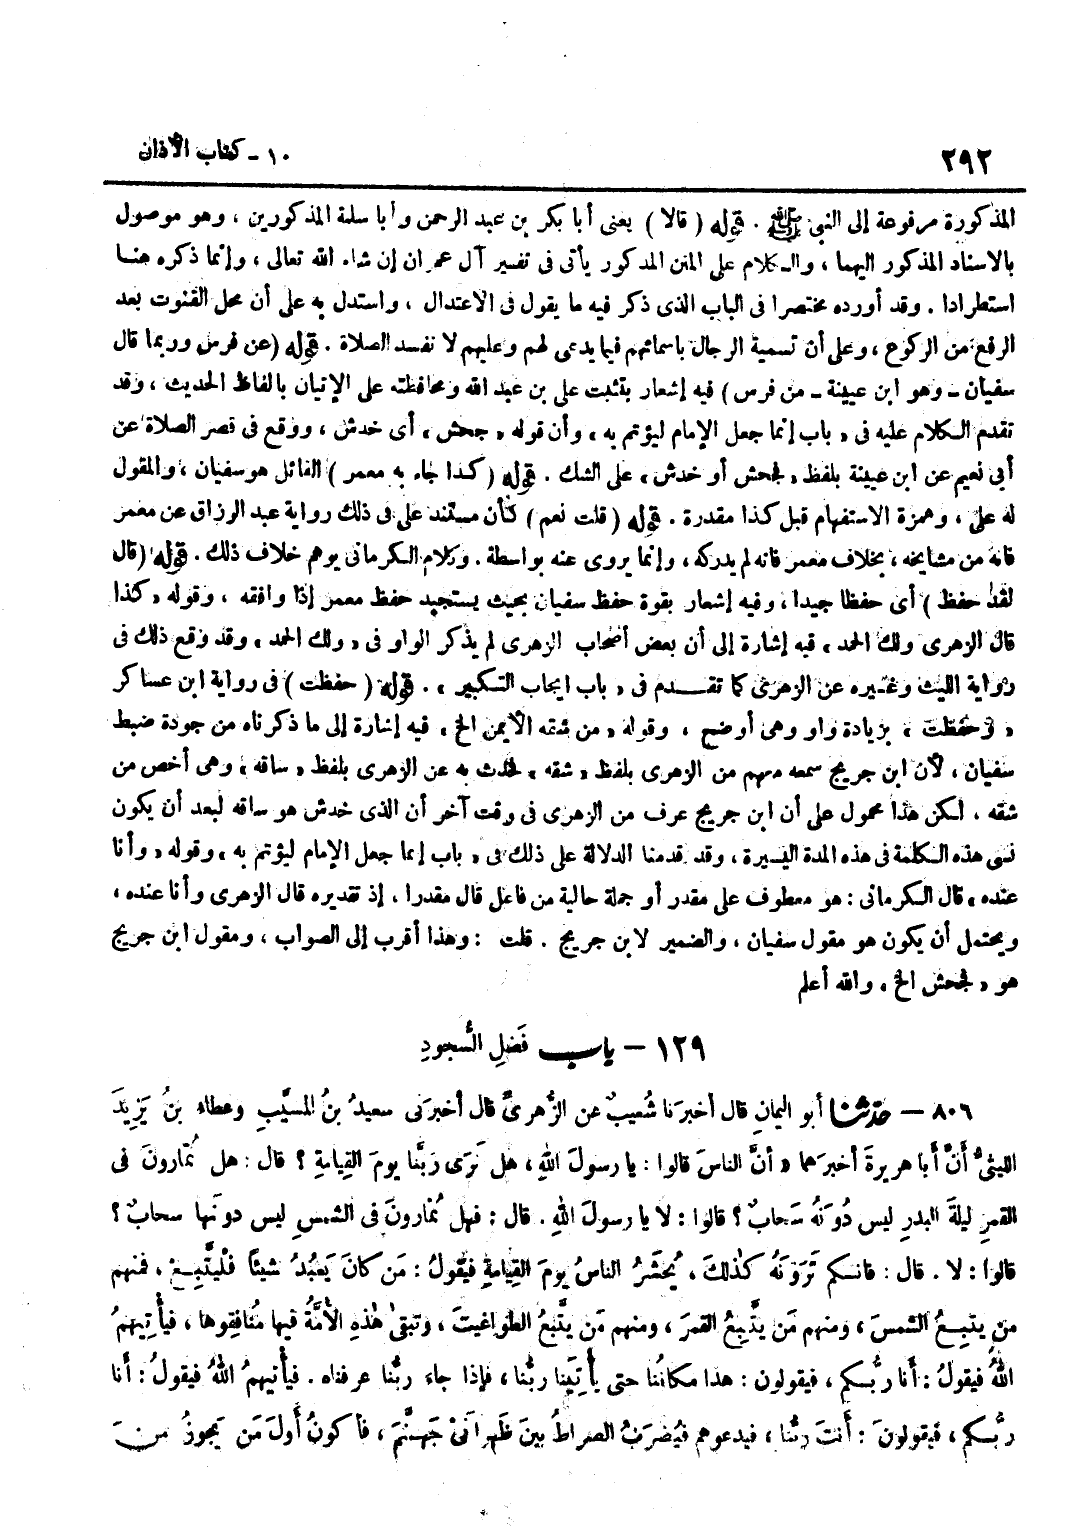 ٢٩٢
١٠ - كتاب الأذان
المذكورة مرفوعة إلى النبي ﷺ . قوله ( قالا ) يعنى أبا بكر بن عبد الرحمن وأبا سلمة المذكورين ، وهو موصول
بالاسناد المذكور اليهما ، والكلام على المتن المذكور يأتى فى تفسير آل عمران إن شاء الله تعالى ، وإنما ذكره هنا
استطرادا . وقد أورده مختصرا فى الباب الذى ذكر فيه ما يقول فى الاعتدال ، واستدل به على أن محل القنوت بعد
الرفع من الركوع ، وعلى أن تسمية الرجال بأسمائهم فيما يدعى لهم وعليهم لا تفسد الصلاة . قوله ( عن فرس وربما قال
سفيان - وهو ابن عيينة - من فرس ) فيه إشعار بتثبت على بن عبد الله ومحافظته على الإتيان بألفاظ الحديث ، وقد
تقدم الكلام عليه فى « باب إنما جعل الإمام ليؤتم به » وأن قوله « جحش » أى خدش ، ووقع فى قصر الصلاة عن
أبى نعيم عن ابن عيينة بلفظ « فجحش أو خدش » على الشك . قوله ( كذا جاء به معمر ) القائل هو سفيان ، والمقول
له على ، وهمزة الاستفهام قبل كذا مقدرة . قوله ( قلت نعم ) كأن مستند على فى ذلك رواية عبد الرزاق عن معمر
فانه من مشايخه ، بخلاف معمر فانه لم يدركه ، وإنما يروى عنه بواسطة . وكلام الكرمانى يوهم خلاف ذلك . قوله ( قال
لقد حفظ ) أى حفظا جيدا ، وفيه إشعار بقوة حفظ سفيان بحيث يستجيد حفظ معمر إذا وافقه ، وقوله « كذا
قال الزهرى ولك الحمد » فيه إشارة إلى أن بعض أصحاب الزهرى لم يذكر الواو فى « ولك الحمد » وقد وقع ذلك فى
رواية الليث وغيره عن الزهرى كما تقدم فى « باب ايجاب التكبير » . قوله ( حفظت ) فى رواية ابن عساكر
« وحفظت » بزيادة واو وهى أوضح ، وقوله « من شقه الأيمن الخ » فيه إشارة إلى ما ذكرناه من جودة ضبط
سفيان ، لأن ابن جريج سمعه معهم من الزهرى بلفظ « شقه » فحدث به عن الزهرى بلفظ « ساقه » وهى أخص من
شقه ، لكن هذا محمول على أن ابن جريج عرف من الزهرى فى وقت آخر أن الذى خدش هو ساقه لبعد أن يكون
نسى هذه الكلمة فى هذه المدة اليسيرة ، وقد قدمنا الدلالة على ذلك فى « باب إنما جعل الإمام ليؤتم به » وقوله « وأنا
عنده » قال الكرمانى : هو معطوف على مقدر أو جملة حالية من فاعل قال مقدرا ، إذ تقديره قال الزهرى وأنا عنده ،
ويحتمل أن يكون هو مقول سفيان ، والضمير لابن جريج . قلت : وهذا أقرب إلى الصواب ، ومقول ابن جريج
هو « فجحش الخ » والله أعلم
١٢٩ - باب فَضلِ السُّجودِ
٨٠٦ - حدّثنا أبو اليمانِ قال أخبرَنا شُعيبٌ عن الزُّهرىِّ قال أخبرَنى سعيدُ بنُ المسيَّبِ وعطاء بنُ يَزِيدَ
الليثىُّ أنَّ أبا هريرةَ أخبرَهما « أنَّ الناسَ قالوا : يا رسولَ اللهِ ، هل نَرَى رَبَّنا يومَ القِيامةِ ؟ قال : هل تُمارونَ فى
القمرِ ليلةَ البدرِ ليس دُونَهُ سَحابٌ ؟ قالوا : لا يا رسولَ اللهِ . قال : فهل تُمارونَ فى الشمسِ ليس دونَها سحابٌ ؟
قالوا : لا . قال : فانكم تَرَونَهُ كذٰلكَ ، يُحشَرُ الناسُ يومَ القِيامةِ فيَقولُ : مَن كانَ يَعبُدُ شيئاً فلْيَتَّبِعْ ، فمنهم
من يتبِعُ الشمسَ ، ومنهم مَن يتَّبِعُ القمرَ ، ومنهم مَن يتَّبعُ الطواغيتَ ، وتبقىٰ هٰذهِ الأمَّةُ فيها مُنافِقوها ، فيأْتِيهمُ
اللهُ فيقولُ : أنا ربُّكم ، فيقولون : هذا مكانُنا حتى يأتِيَنا ربُّنا ، فإذا جاء ربُّنا عرفناه . فيأتيهمُ اللهُ فيقولُ : أنا
ربُّكم ، فيقولونَ : أنتَ ربُّنا ، فيدعوهم فيُضرَبُ الصراطُ بينَ ظَهرانَىْ جَهنَّمَ ، فأكونُ أولَ مَن يَجوزُ منَ